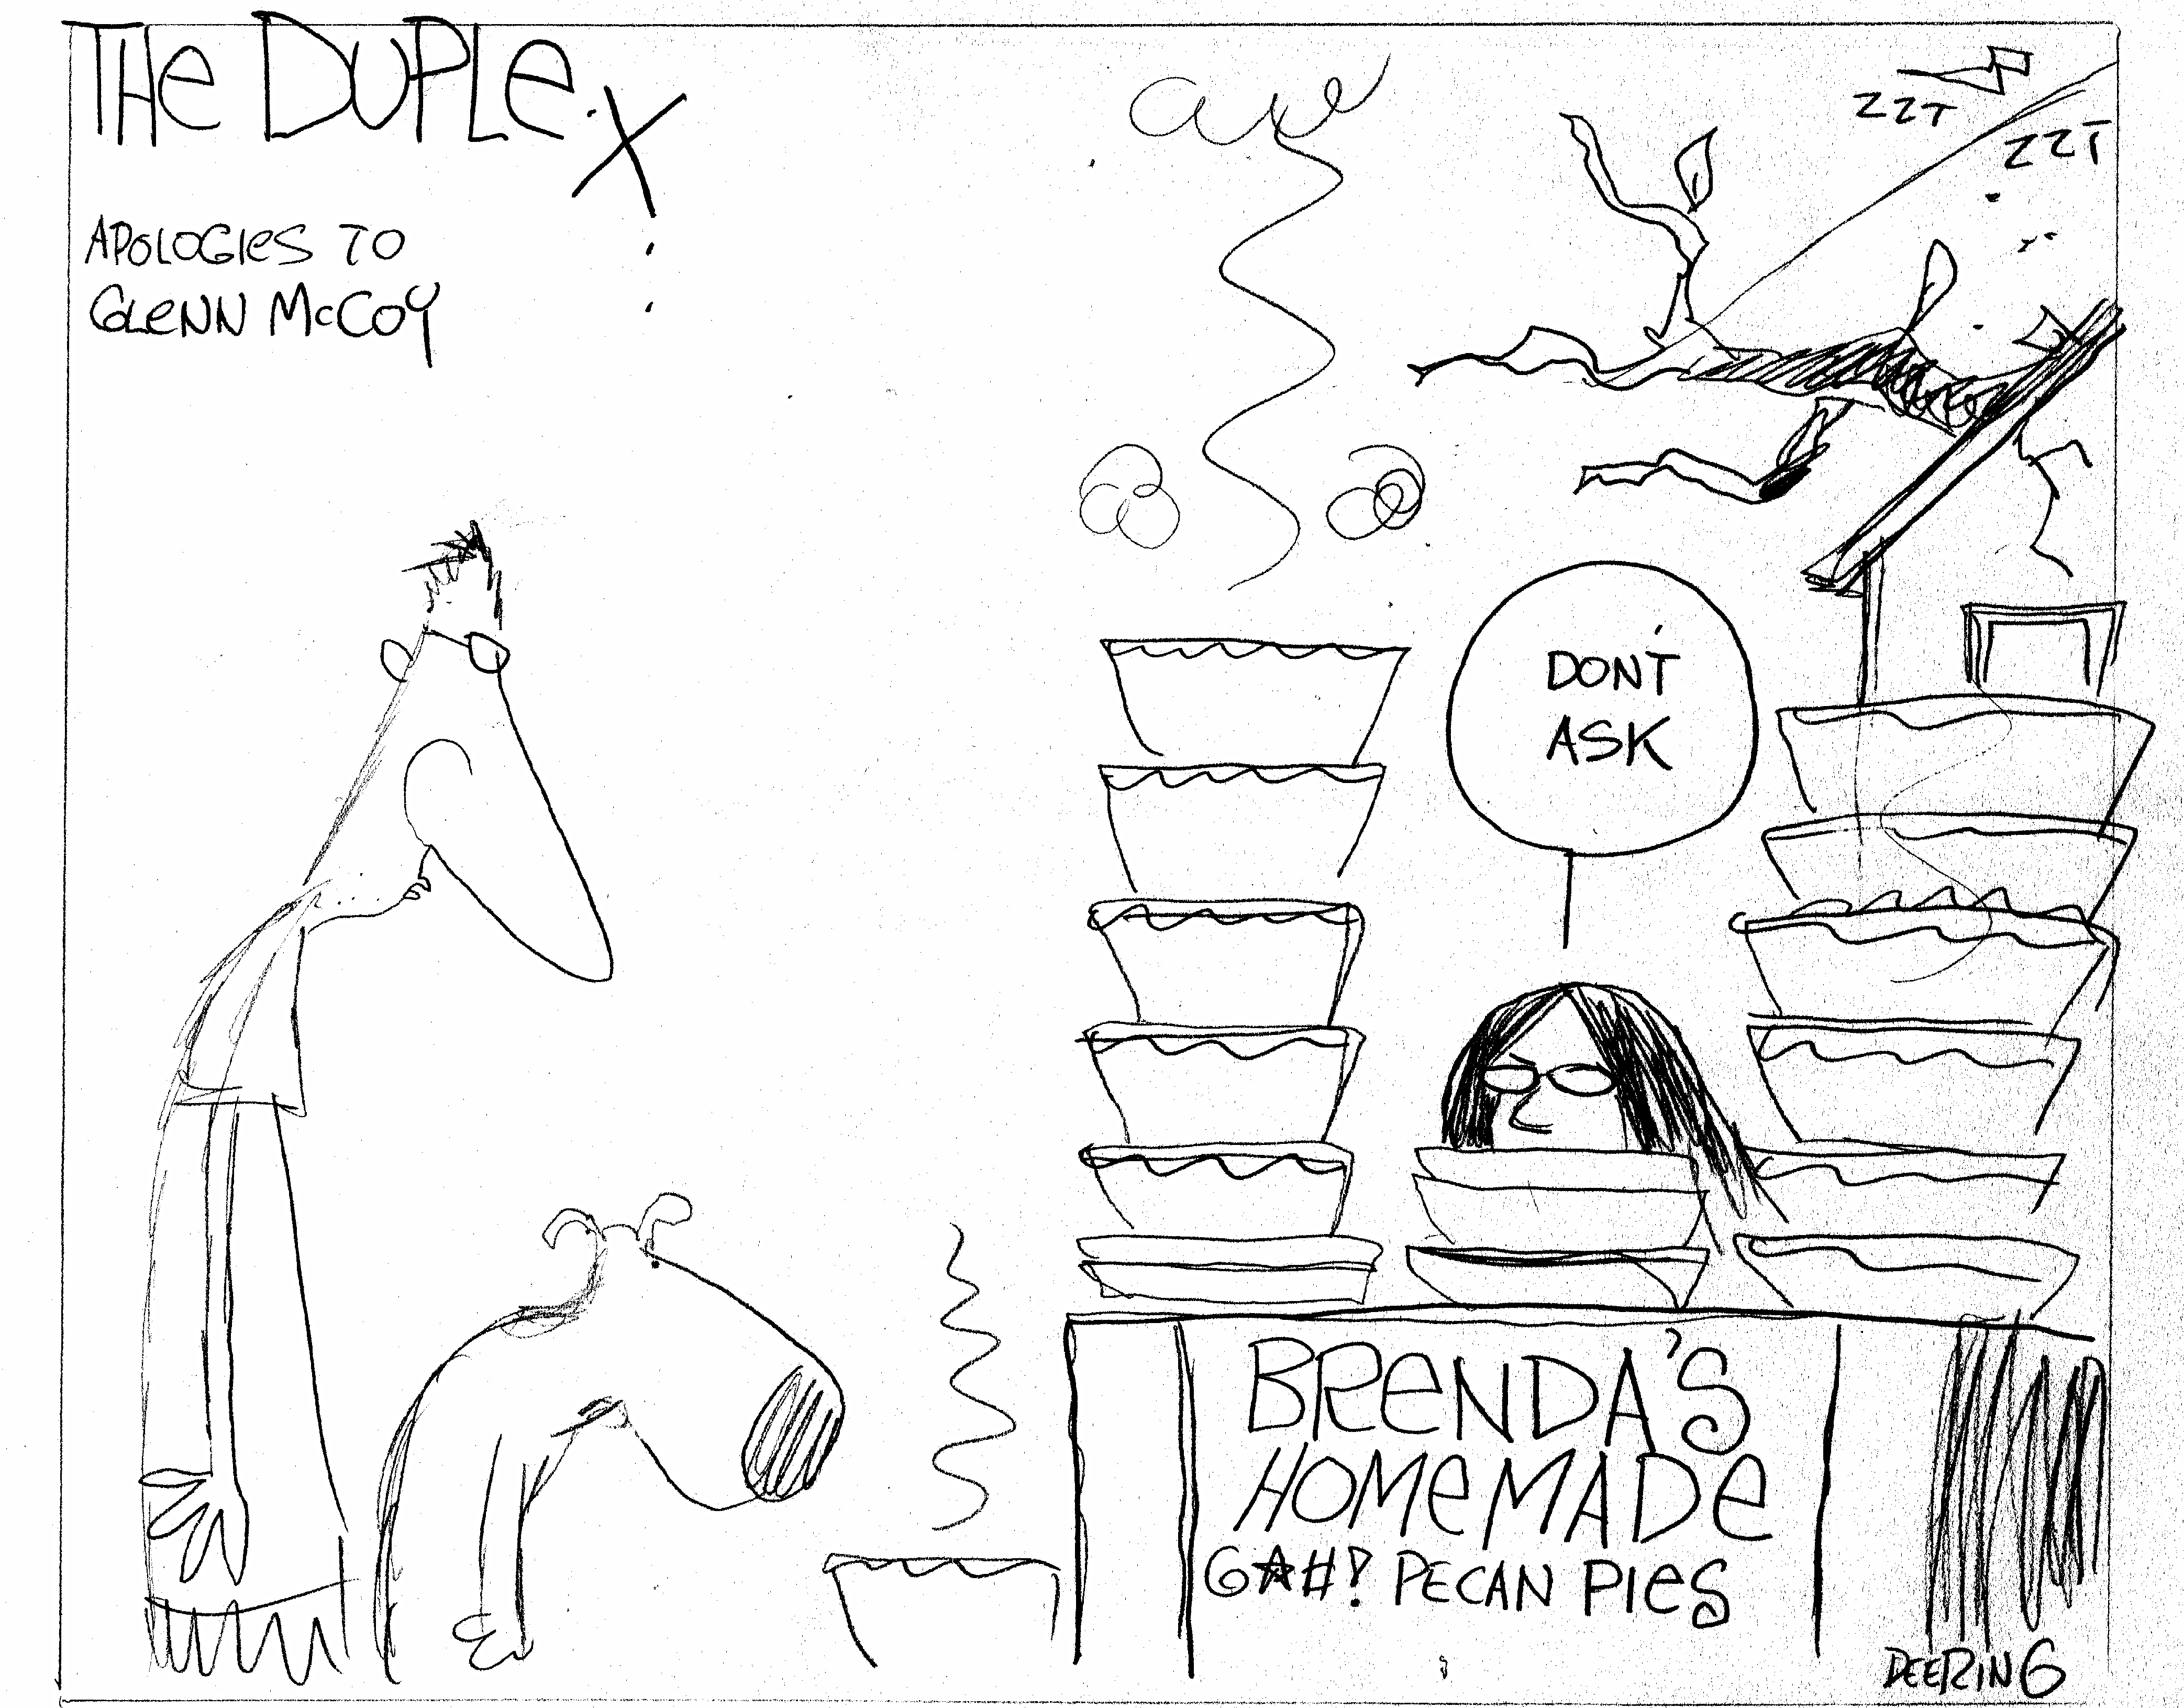 THe DUPLex
APOLOGIeS TO
GLeNN McCOY
ZZT
ZZT
DON'T
ASK
BReNDA'S
HOMeMADe
G★#! PECAN PIeS
DEERING